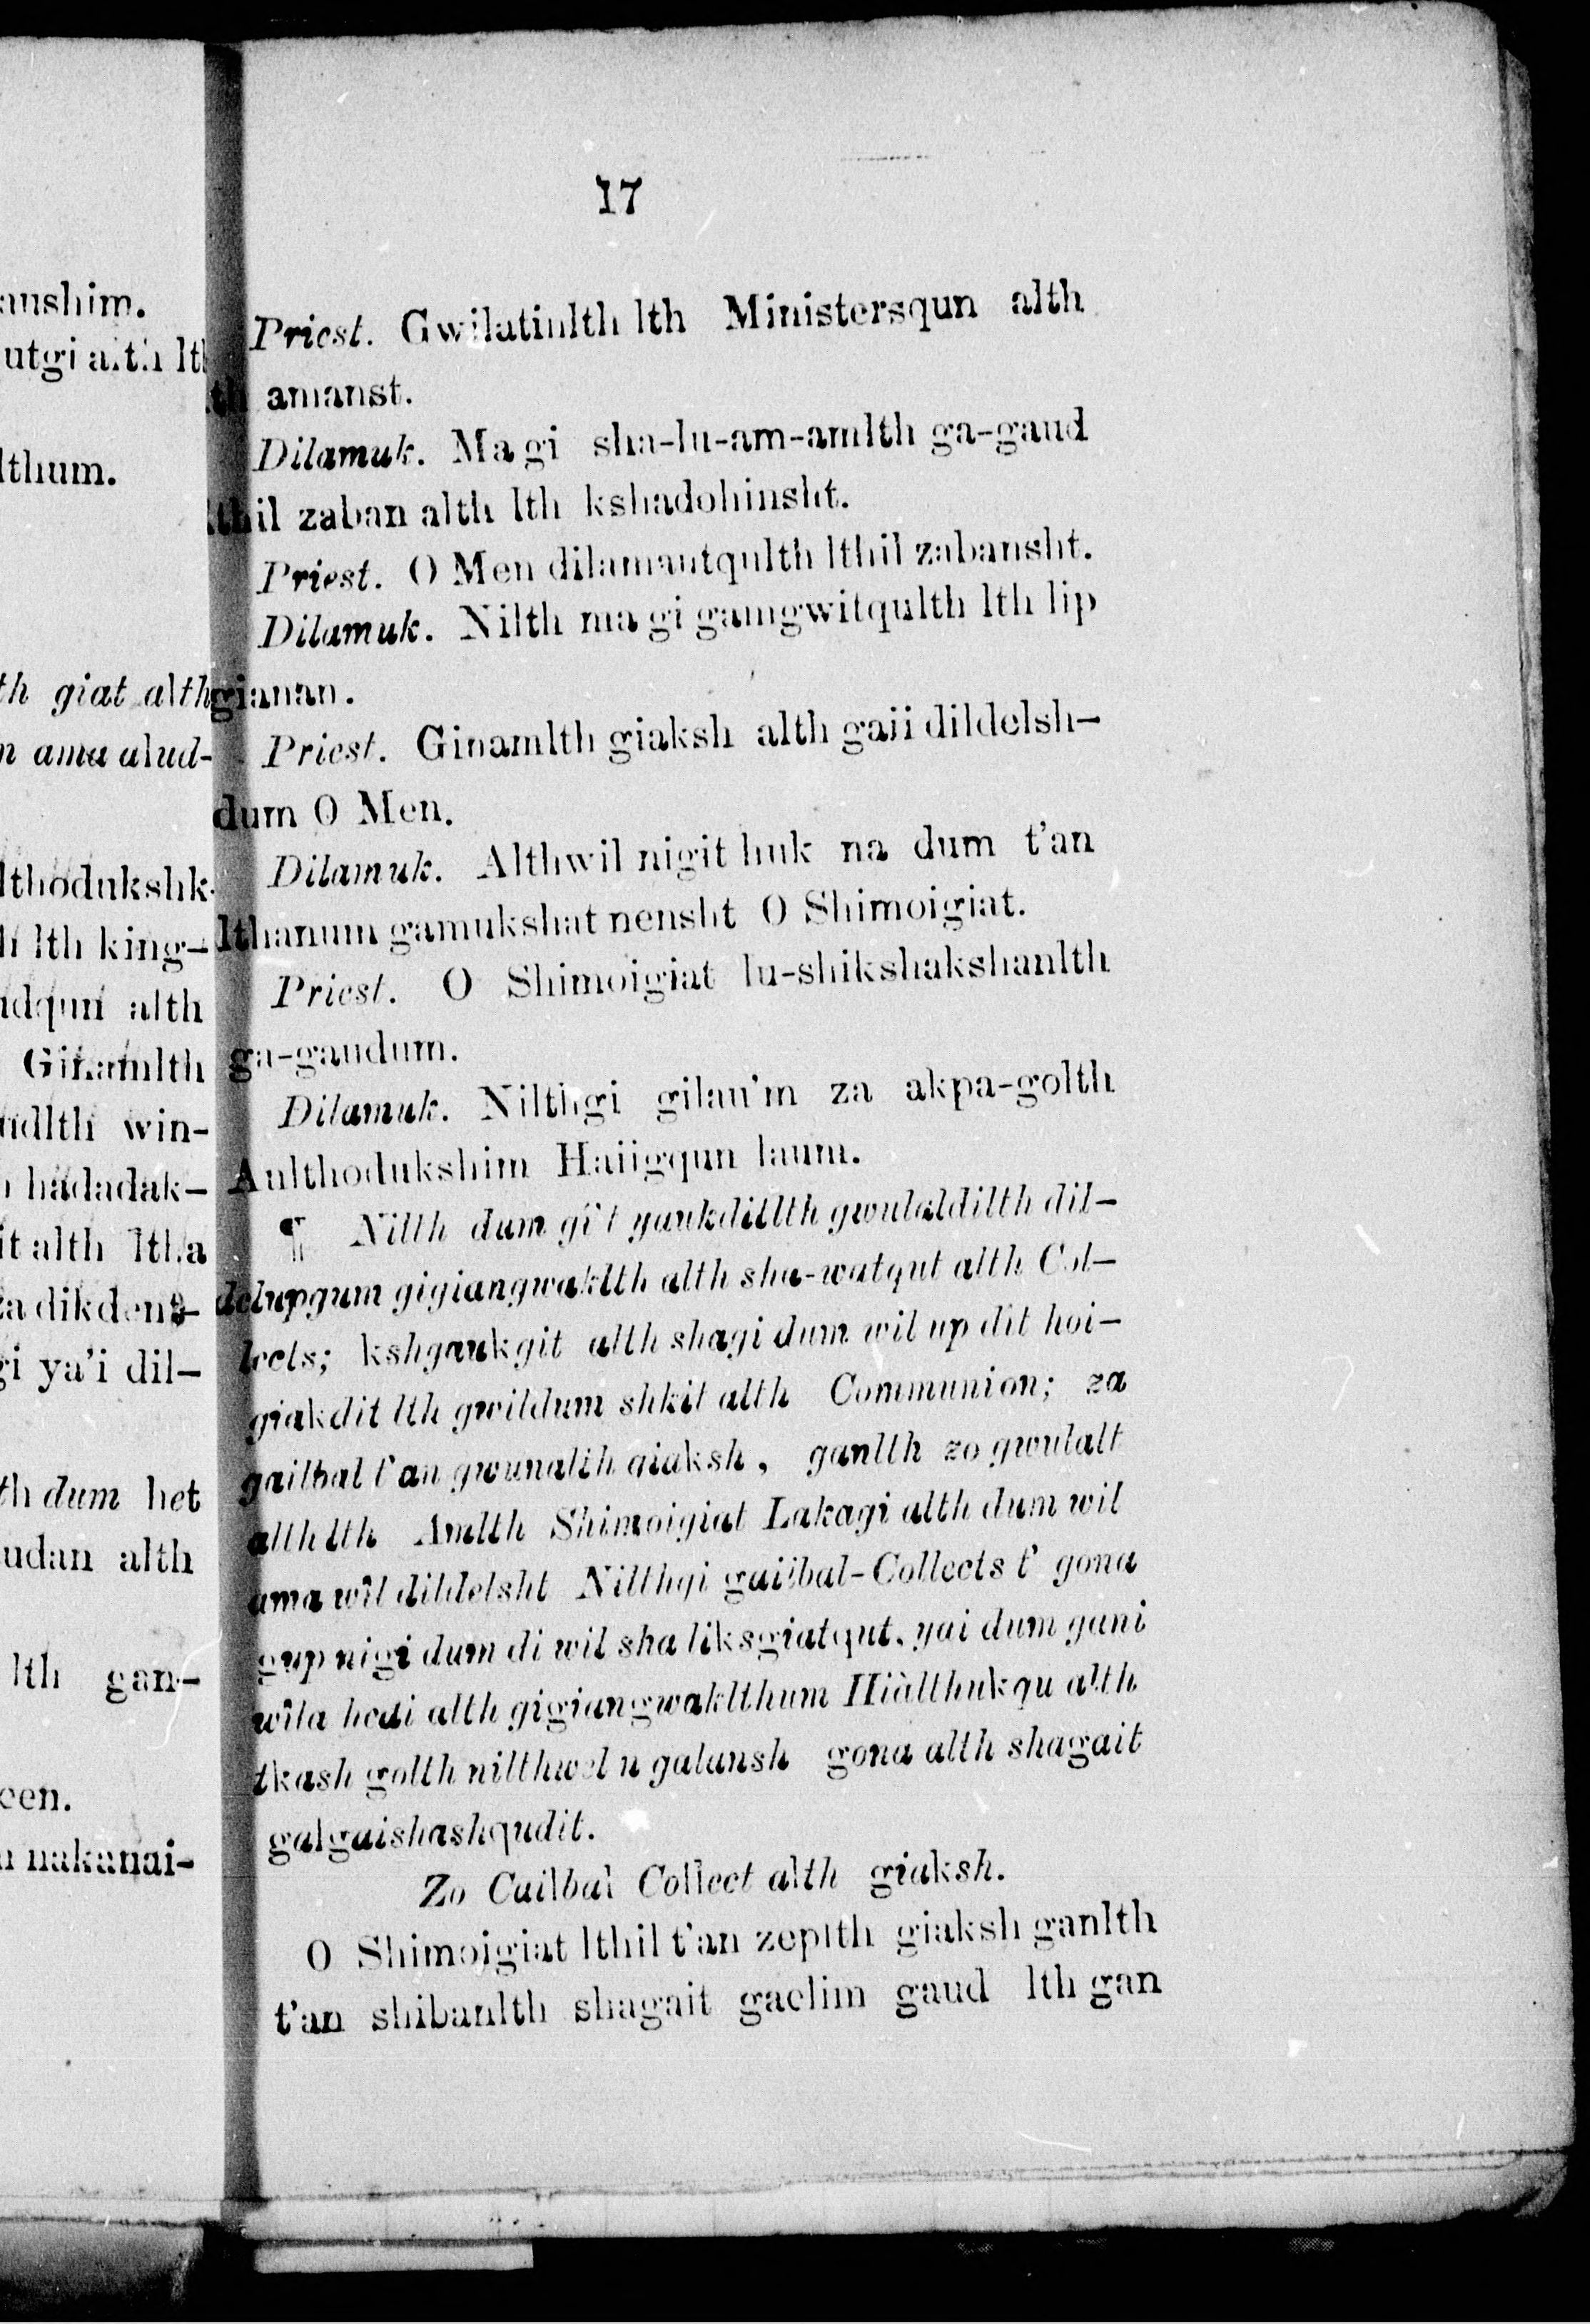 anshim.
utgi alth lth
lthum.
th giat alth
n ama alud-
lthodukshk-
h lth king-
adqun alth
Ginamlth
adlth win-
hadadak-
it alth ltha
za dikdens-
gi ya'i dil-
th dum het
udan alth
lth gan-
een.
nakanai-
17
Priest. Gwilatinlth lth Ministersqun alth
lth amanst.
Dilamuk. Ma gi sha-lu-am-amlth ga-gaud
lthil zaban alth lth kshadohinsht.
Priest. O Men dilamautqulth lthil zabansht.
Dilamuk. Nilth ma gi gamgwitqulth lth lip
gianan.
Priest. Ginamlth giaksh alth gaii dildelsh-
dum O Men.
Dilamuk. Althwil nigit huk na dum t'an
lthanum gamukshat nensht O Shimoigiat.
Priest. O Shimoigiat lu-shikshakshanlth
ga-gaudum.
Dilamuk. Nilthgi gilau'm za akpa-golth
Aulthodukshim Haiigqun laum.
¶ Nilth dum gi't gaukditlth gwulaldilth dil-
delupgum gigiangwaklth alth sha-watqut alth Col-
lects; kshgaukgit alth shagi dum wil up dit hoi-
giakdit lth gwildum shkit alth Communion; za
gailbal t'an gwunalth giaksh, ganlth zo gwulalt
alth lth Amlth Shimoigiat Lakagi alth dum wil
ama wil dildelsht Nilthgi gailbal-Collects t' gona
gup nigi dum di wil sha liksgiatqut, yai dum gani
wila hedi alth gigiangwaklthum Hiàlthukqu alth
tkash golth nilthwel n galansh gona alth shagait
galgaishashqudit.
Zo Cuilbal Collect alth giaksh.
O Shimoigiat lthil t'an zeplth giaksh ganlth
t'an shibanlth shagait gaelim gaud lth gan